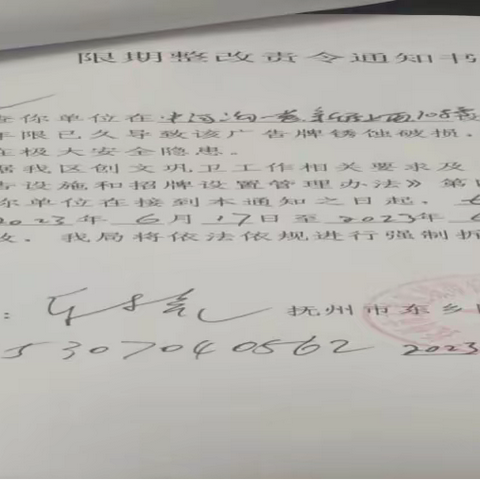 限期整改责令通知书
你单位在
年限已久导致该广告牌锈蚀破损,
在极大安全隐患。
据我区创文巩卫工作相关要求及
告设施和招牌设置管理办法》第
你单位在接到本通知之日起,
2023年6月17日至2023年6
改。我局将依法依规进行强制拆
: 抚州市东乡
5307040562 2023